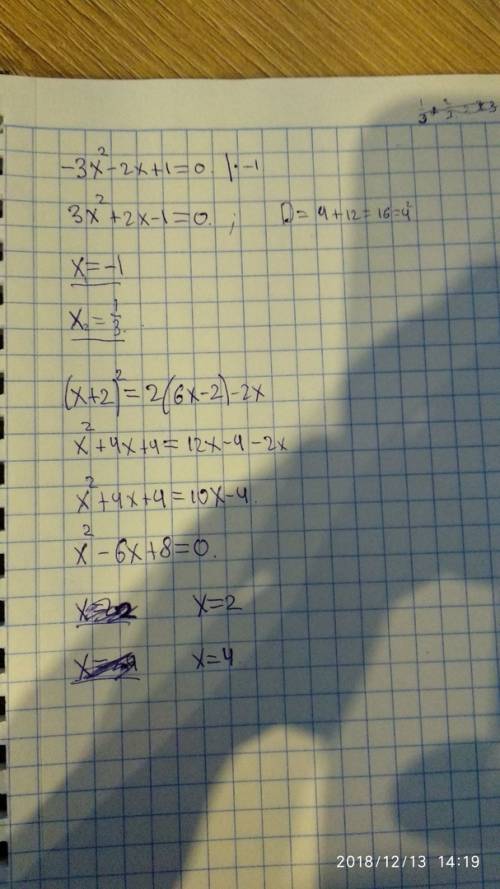 -3x²-2x+1=0. |·-1
3x²+2x-1=0. ; D=4+12=16=4²
x=-1
x₂=1/3.
(x+2)²=2(6x-2)-2x
x²+4x+4=12x-4-2x
x²+4x+4=10x-4.
x²-6x+8=0.
x=2
x=4
2018/12/13 14:19